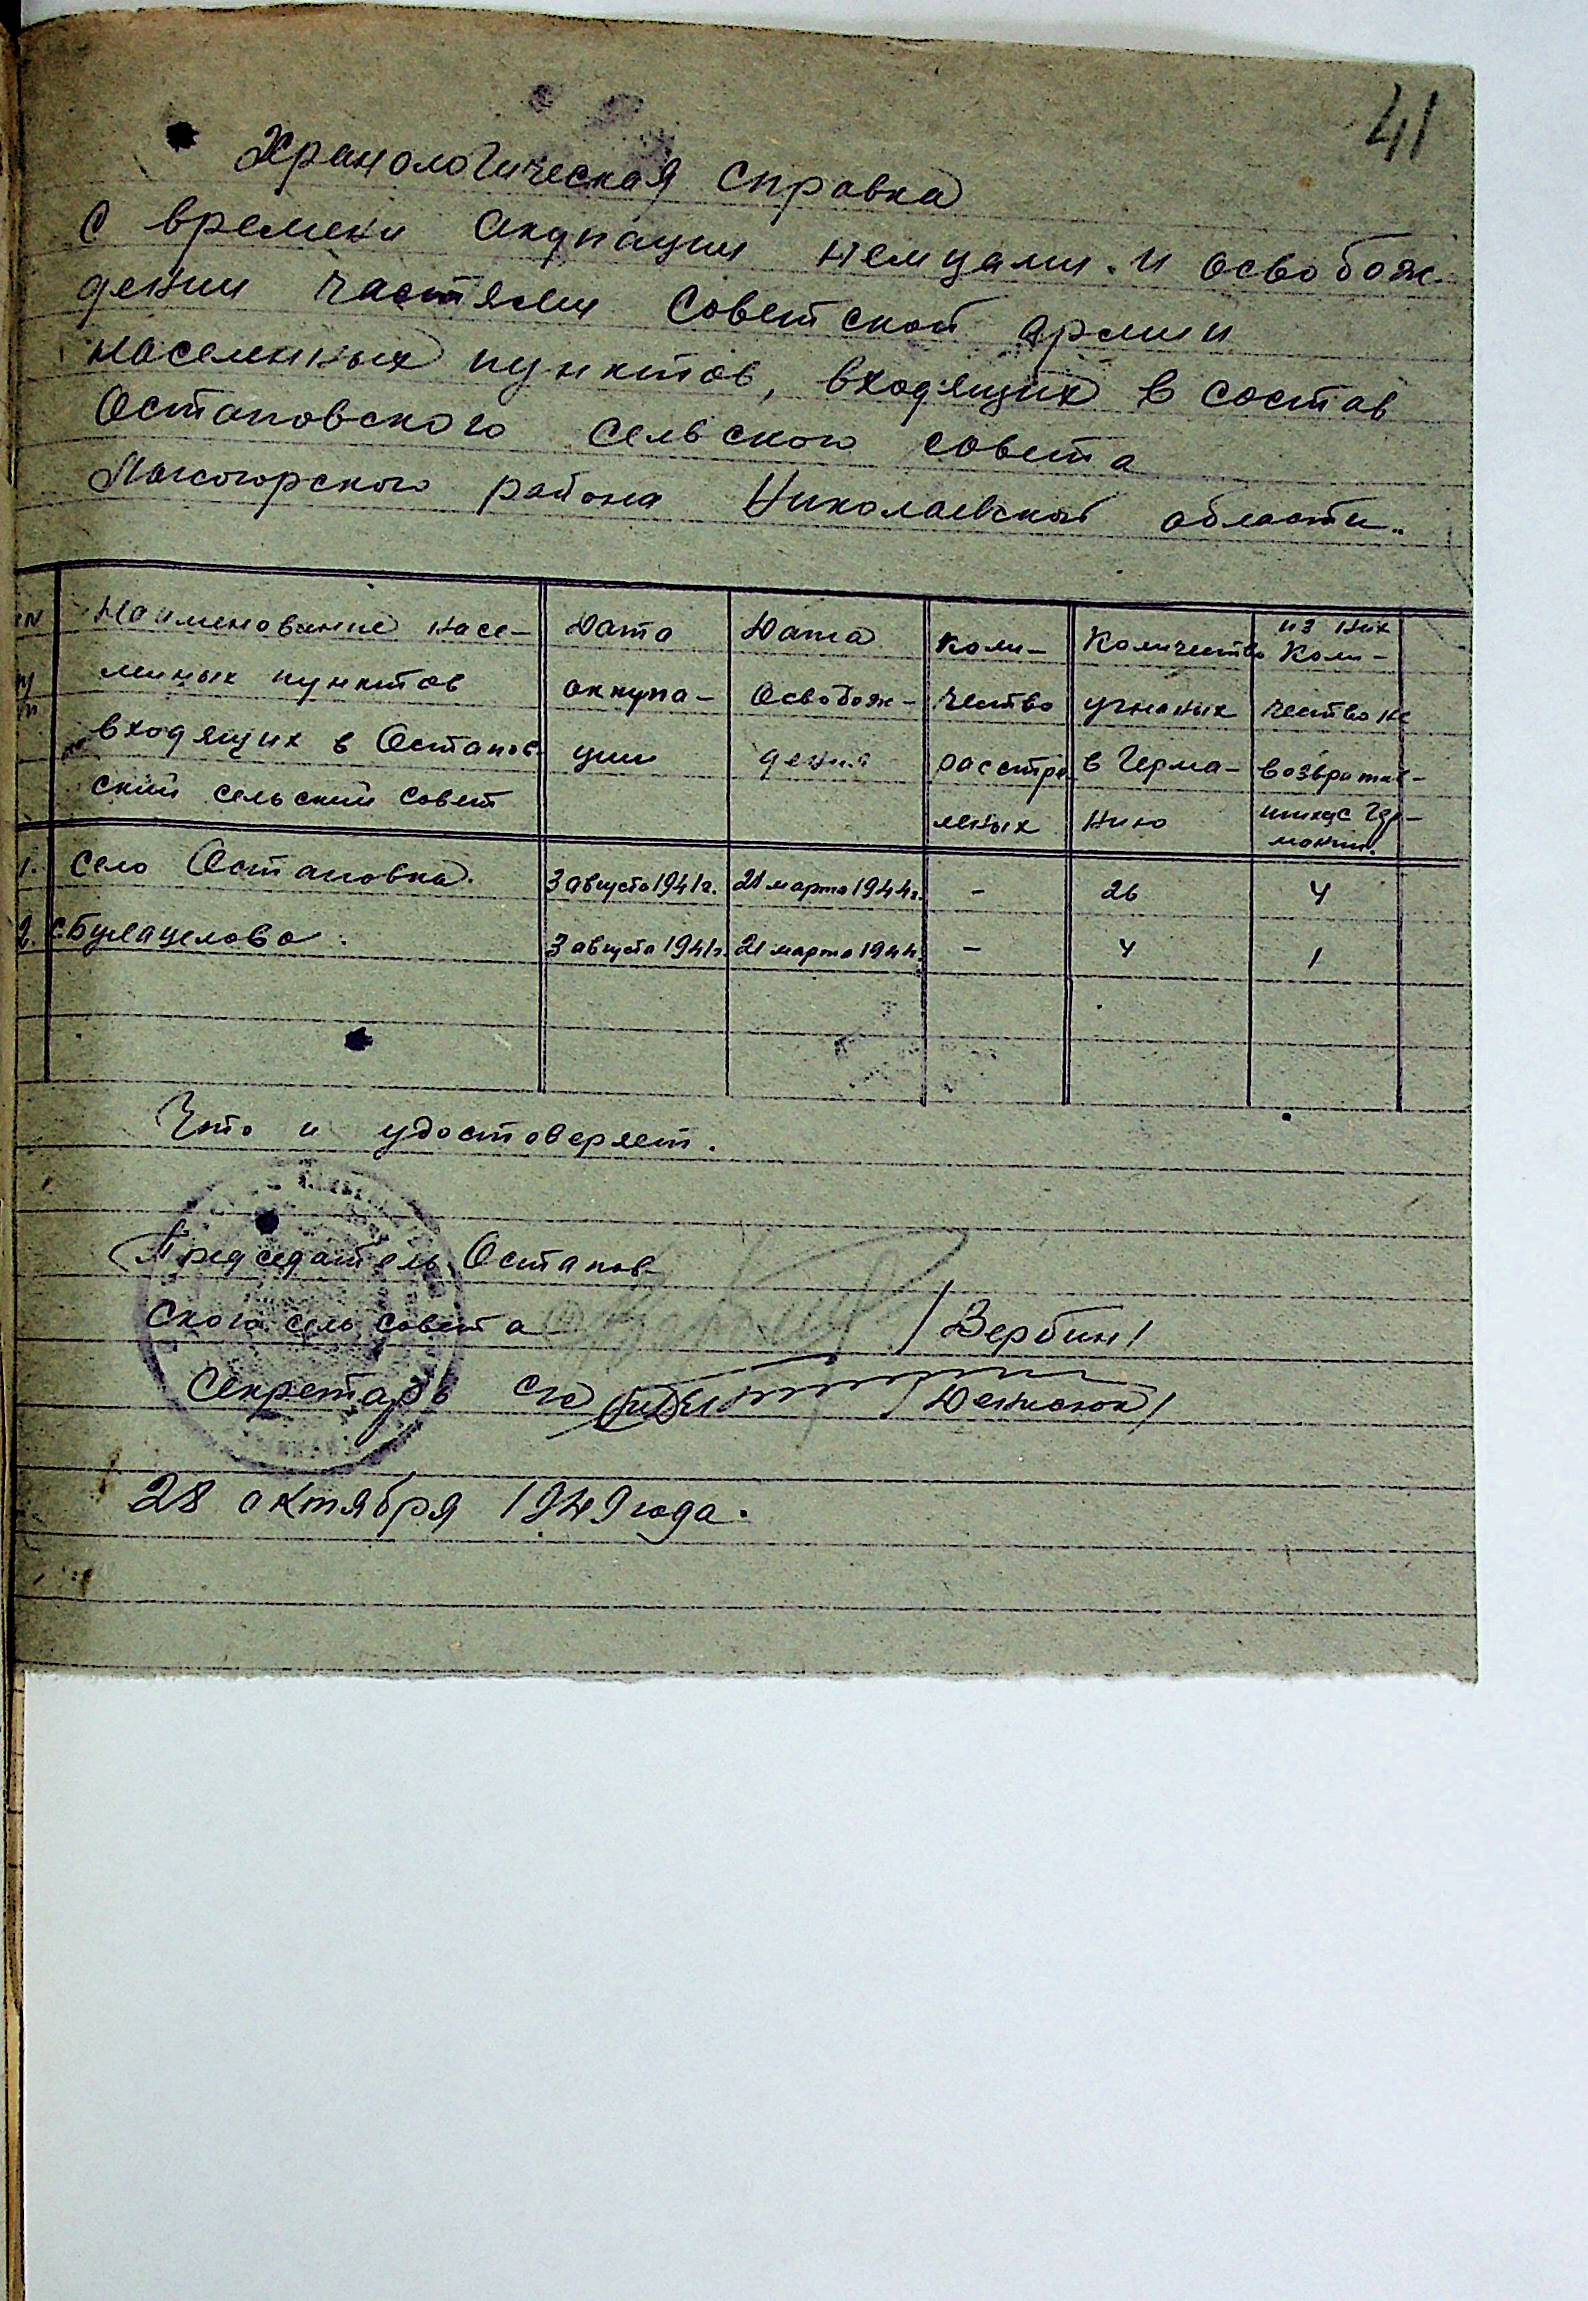 41
Хранологическая справка
с времени акупации немцами. и освобож-
дении частями Советской армии
населенных пунктов, входящих в состав
Остаповского сельского совета
Лысогорского района Николаевской области.
Наименование насе-
ленных пунктов
входящих в Остапов-
ский сельский совет
Дата
оккупа-
ции
Дата
Освобож-
дения
Коли-
чество
расстре
леных
Количество
угнаных
в Герма-
нию
из них
Коли-
чество не
возвратив-
шихся с Гер-
мании.
1. Село Остаповка. 3 августа 1941г. 21 марта 1944г. - 26 4
2. с. Булацелово. 3 августа 1941г. 21 марта 1944г. - 4 1
Что и удостоверяет.
Председатель Остапов-
ского сельсовета /Вербин/
Секретарь с/с /Денисюк/
28 октября 1949 года.